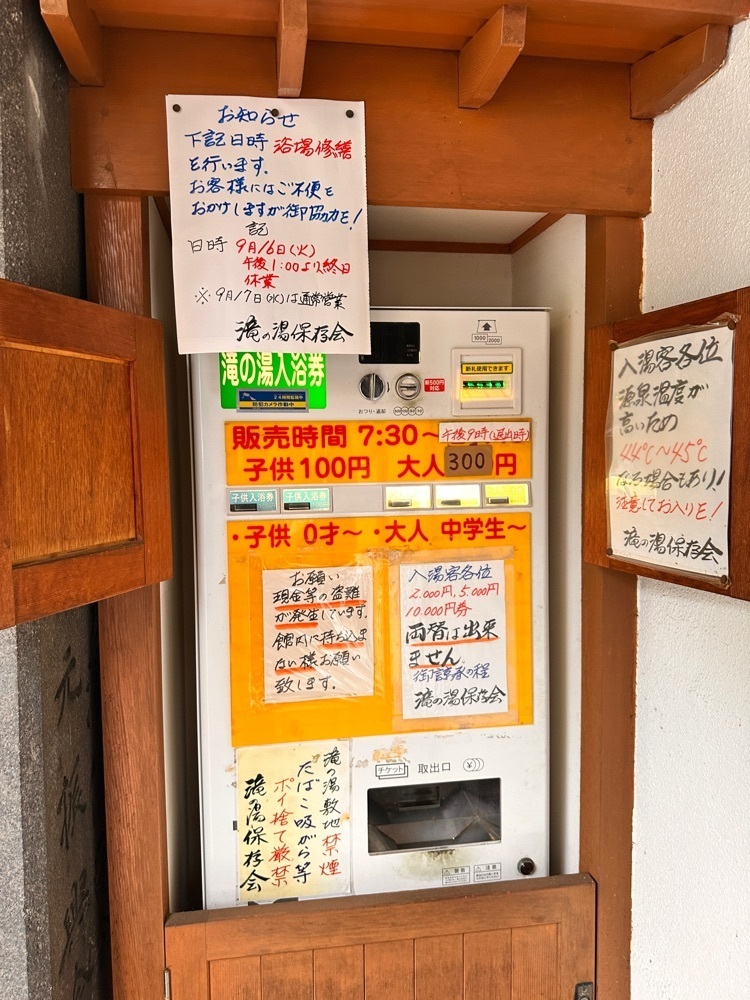 お知らせ
下記日時 浴場修繕
を行います。
お客様にはご不便を
おかけしますが御協力を!
記
日時 9月16日(火)
午後1:00より終日
休業
※9月17日(水)は通常営業
滝の湯保存会
滝の湯入浴券
24時間監視中
防犯カメラ作動中
おつり・返却
新500円
対応
1000 2000
新札使用できます
販売時間 7:30〜午後9時(退出時)
子供100円 大人300円
子供入浴券 子供入浴券
・子供 0才〜・大人 中学生〜
お願い
現金等の盗難
が発生しています。
館内に持ち込ま
ない様お願い
致します。
入湯客各位
2.000円,5.000円
10.000円券
両替は出来
ません。
御諒承の程
滝の湯保存会
入湯客各位
源泉温度が
高いため
44℃〜45℃
なる場合もあり!
注意してお入りを!
滝の湯保存会
滝の湯敷地禁煙
たばこ吸がら等
ポイ捨て厳禁
滝の湯保存会
チケット 取出口